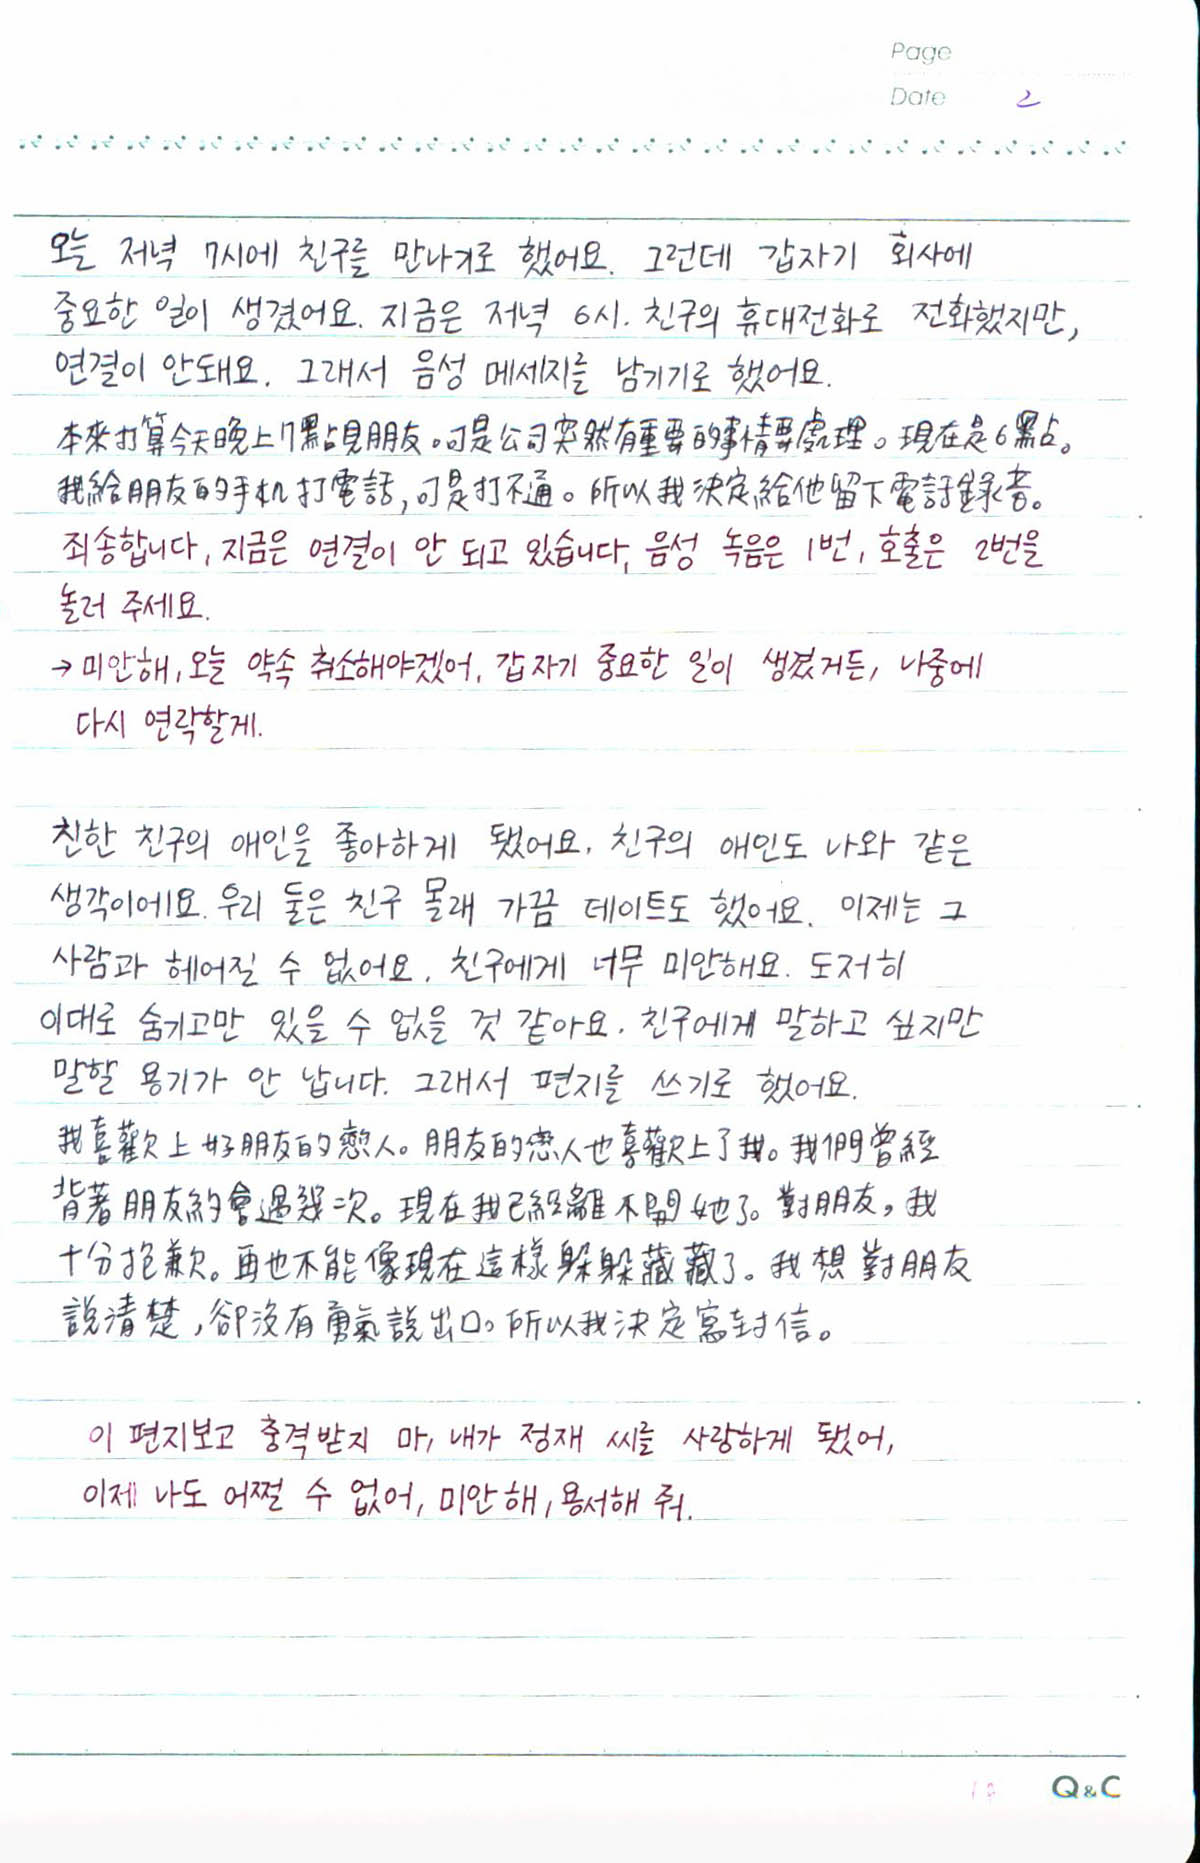 Page
Date 2
오늘 저녁 7시에 친구를 만나기로 했어요. 그런데 갑자기 회사에
중요한 일이 생겼어요. 지금은 저녁 6시. 친구의 휴대전화로 전화했지만,
연결이 안돼요. 그래서 음성 메세지를 남기기로 했어요.
本來打算今天晚上7點見朋友。可是公司突然有重要的事情要處理。現在是6點。
我給朋友的手机打電話,可是打不通。所以我決定給他留下電話錄音。
죄송합니다, 지금은 연결이 안 되고 있습니다, 음성 녹음은 1번, 호출은 2번을
눌러 주세요.
→ 미안해, 오늘 약속 취소해야겠어, 갑자기 중요한 일이 생겼거든, 나중에
다시 연락할게.
친한 친구의 애인을 좋아하게 됐어요. 친구의 애인도 나와 같은
생각이에요. 우리 둘은 친구 몰래 가끔 데이트도 했어요. 이제는 그
사람과 헤어질 수 없어요. 친구에게 너무 미안해요. 도저히
이대로 숨기고만 있을 수 없을 것 같아요. 친구에게 말하고 싶지만
말할 용기가 안 납니다. 그래서 편지를 쓰기로 했어요.
我喜歡上好朋友的戀人。朋友的恋人也喜歡上了我。我們曾經
背著朋友約會過幾次。現在我已經離不開她了。對朋友,我
十分抱歉。再也不能像現在這樣躲躲藏藏了。我想對朋友
說清楚,卻沒有勇氣說出口。所以我決定寫封信。
이 편지보고 충격받지 마, 내가 정재 씨를 사랑하게 됐어,
이제 나도 어쩔 수 없어, 미안해, 용서해 줘.
Q&C